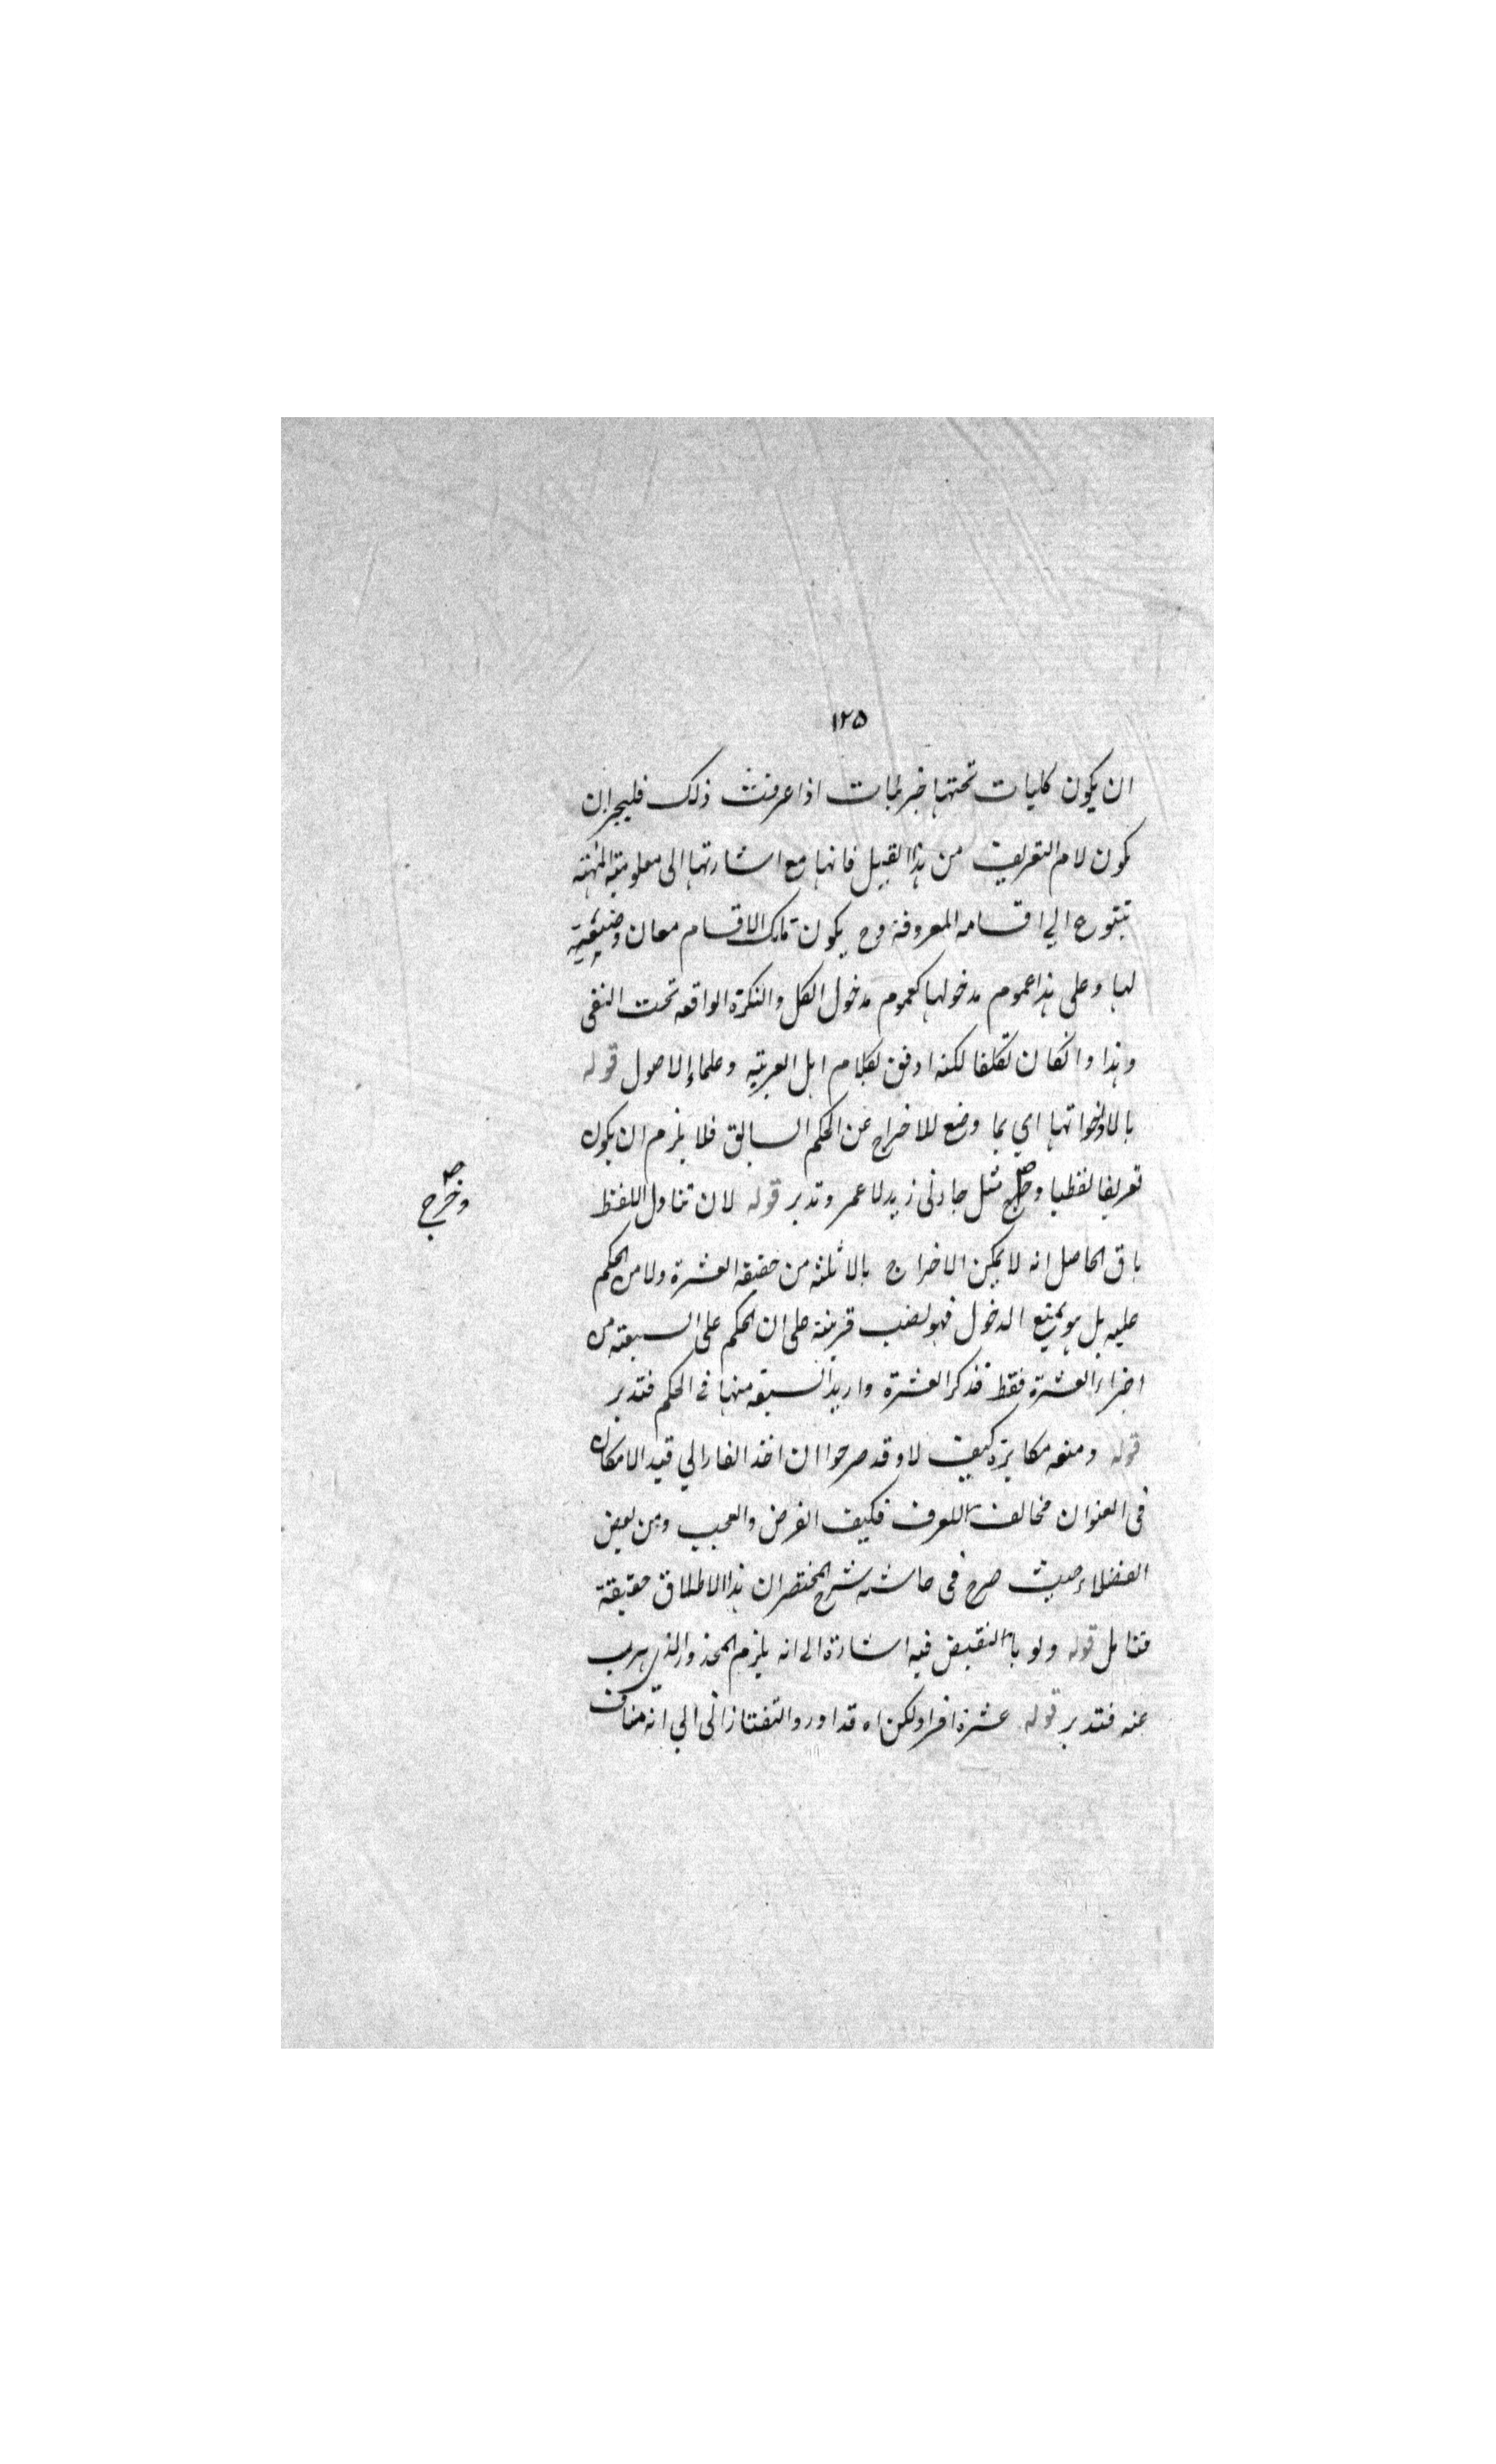 ١٢٥
ان يكون كليات تحتها جزئيات اذا عرفت ذلك فليجز ان
يكون لام التعريف من هذا القبيل فانها مع اشارتها الى معلومية المهية
تتنوع الي اقسامه المعروفة وح يكون تلك الاقسام معان
لها وعلى هذا عموم مدخولها كعموم مدخول الكل والنكرة الواقعه تحت النفى
وهذا وانكان تكلفا لكنه اوفق بكلام اهل العربية وعلماء الاصول قوله
بالا واخواتها اي بما وضع للاخراج عن الحكم السابق فلا يلزم ان يكون
تعريفا لفظيا وخرج مثل جاءنى زيد لا عمر وتدبر قوله لان تناول اللفظ
وخرج صح
باق الحاصل انه لا يمكن الاخراج بالا ثلثه من حقيقة العشرة ولا من الحكم
عليه بل هو يمنع الدخول فهو نصب قرينة على ان الحكم على السبعة من
اجزاء العشرة فقط فذكر العشرة واريد السبعة منها فى الحكم فتدبر
قوله ومنعه مكابرة كيف لا وقد صرحوا ان اخذ الفارابي قيد الامكان
فى العنوان مخالف للعرف فكيف الفرض والعجب من بعض
الفضلاء حيث صرح فى حاشية شرح المختصر ان هذا الاطلاق حقيقة
فتامل قوله ولو بالنقيض فيه اشارة الى انه يلزم المحذور الذى هرب
عنه فتدبر قوله عشرة افراد لكن اه قد اورد التفتازانى الي انه مناف